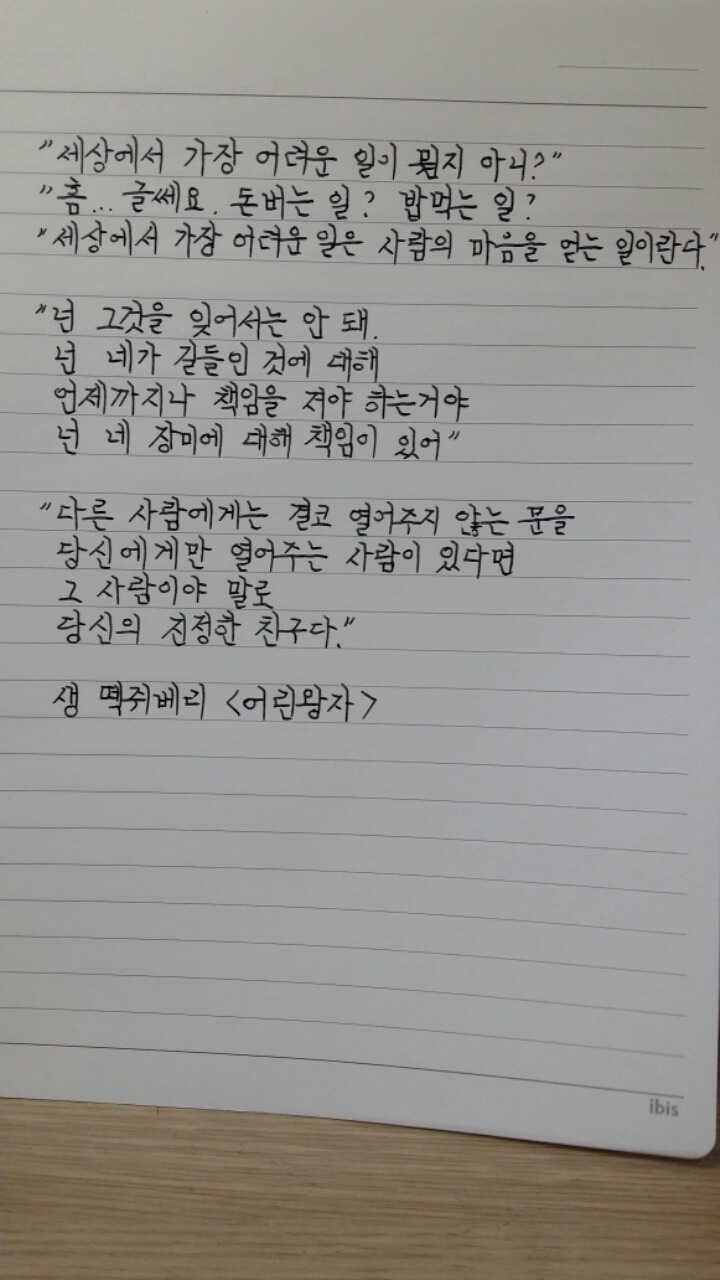 "세상에서 가장 어려운 일이 뭔지 아니?"
"흠... 글쎄요. 돈버는 일? 밥먹는 일?
"세상에서 가장 어려운 일은 사람의 마음을 얻는 일이란다."
"넌 그것을 잊어서는 안 돼.
넌 네가 길들인 것에 대해
언제까지나 책임을 져야 하는거야
넌 네 장미에 대해 책임이 있어"
"다른 사람에게는 결코 열어주지 않는 문을
당신에게만 열어주는 사람이 있다면
그 사람이야 말로
당신의 진정한 친구다."
생 떽쥐베리 <어린왕자>
ibis